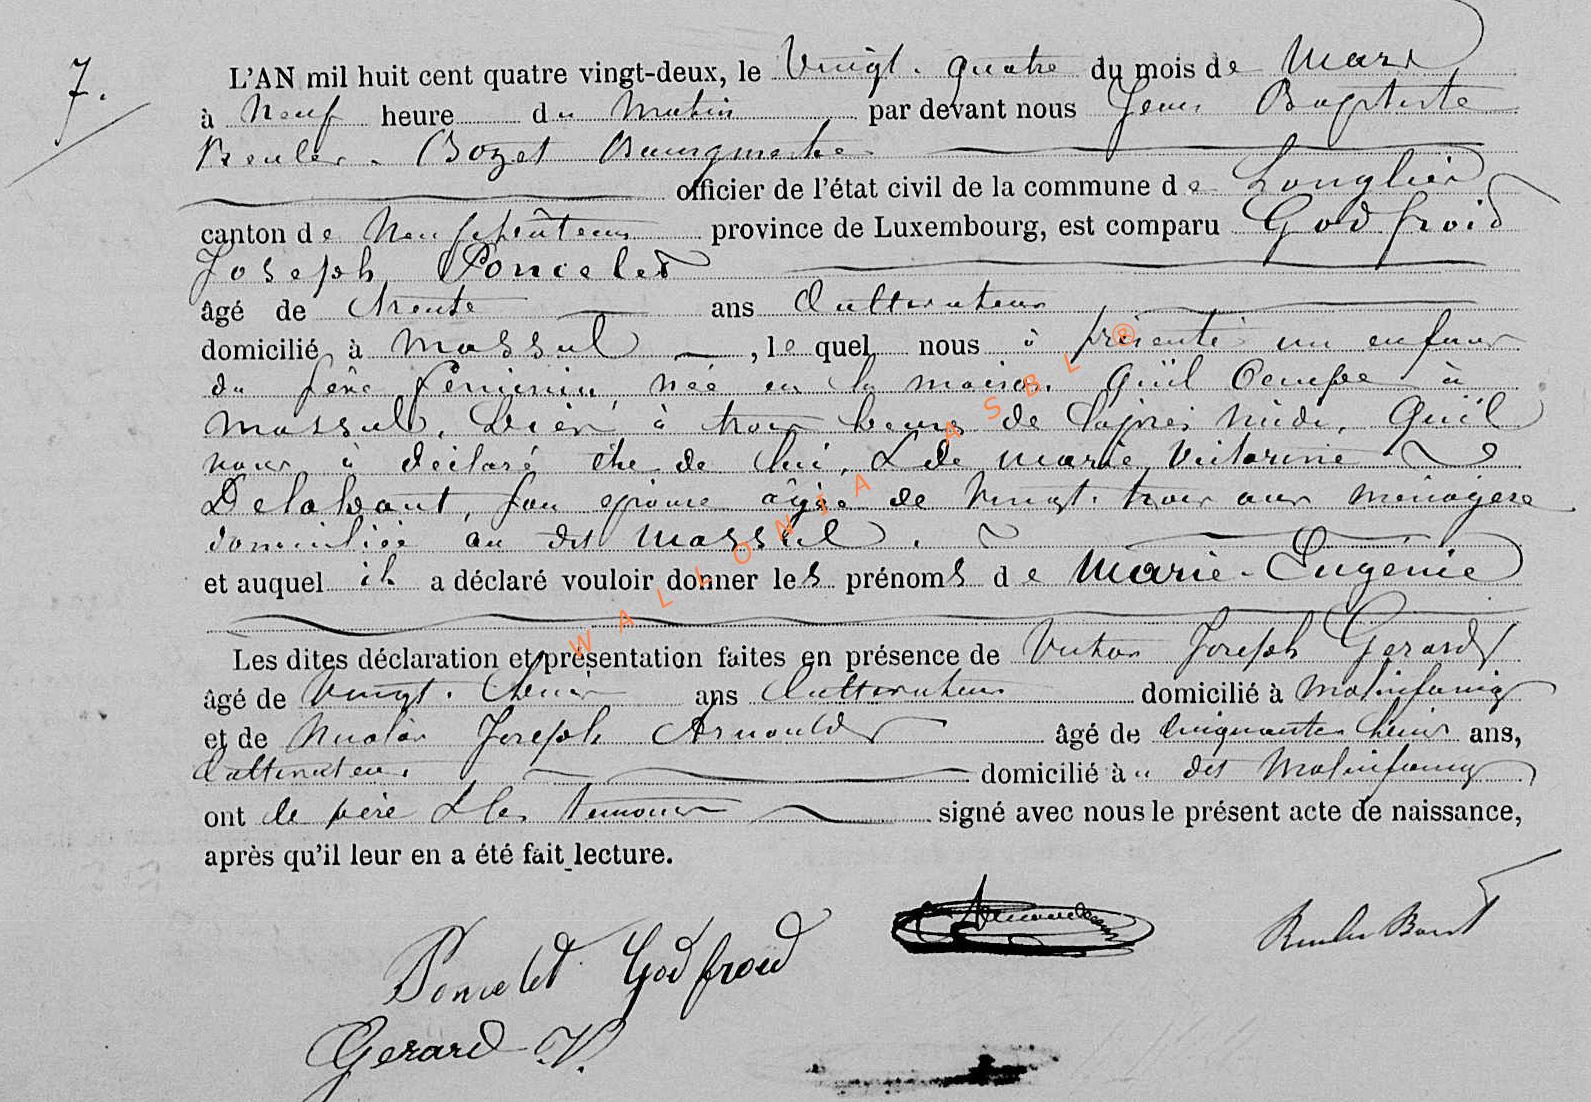 7.
L'AN mil huit cent quatre vingt-deux, le Vingt-quatre du mois de Mars
à Neuf heure du Matin par devant nous Jean Baptiste
Reuler-Bozet Bourgmestre
officier de l'état civil de la commune de Longlier
canton de Neufchâteau province de Luxembourg, est comparu Godfroid
Joseph Poncelet
âgé de trente ans Cultivateur
domicilié à Massul, lequel nous à présenté un enfant
du sexe féminin, née en la maison qu'il Occupe à
Massul, hier à trois heures de l'après midi, qu'il
nous à déclaré être de lui & de Marie Victorine
son épouse âgée de Vingt-trois ans ménagère
domiciliée au dit Massul.
et auquel il a déclaré vouloir donner les prénoms de Marie-Eugénie
Les dites déclaration et présentation faites en présence de Victor Joseph Gerard
âgé de Vingt- ans Cultivateur domicilié à Molinfaing
et de Nicolas Joseph Arnould âgé de ans,
Cultivateur domicilié à u dit Molinfaing
ont le père & les témoins signé avec nous le présent acte de naissance,
après qu'il leur en a été fait lecture.
Poncelet Godfroid
Gerard V.
WALLONIA ASBL ®